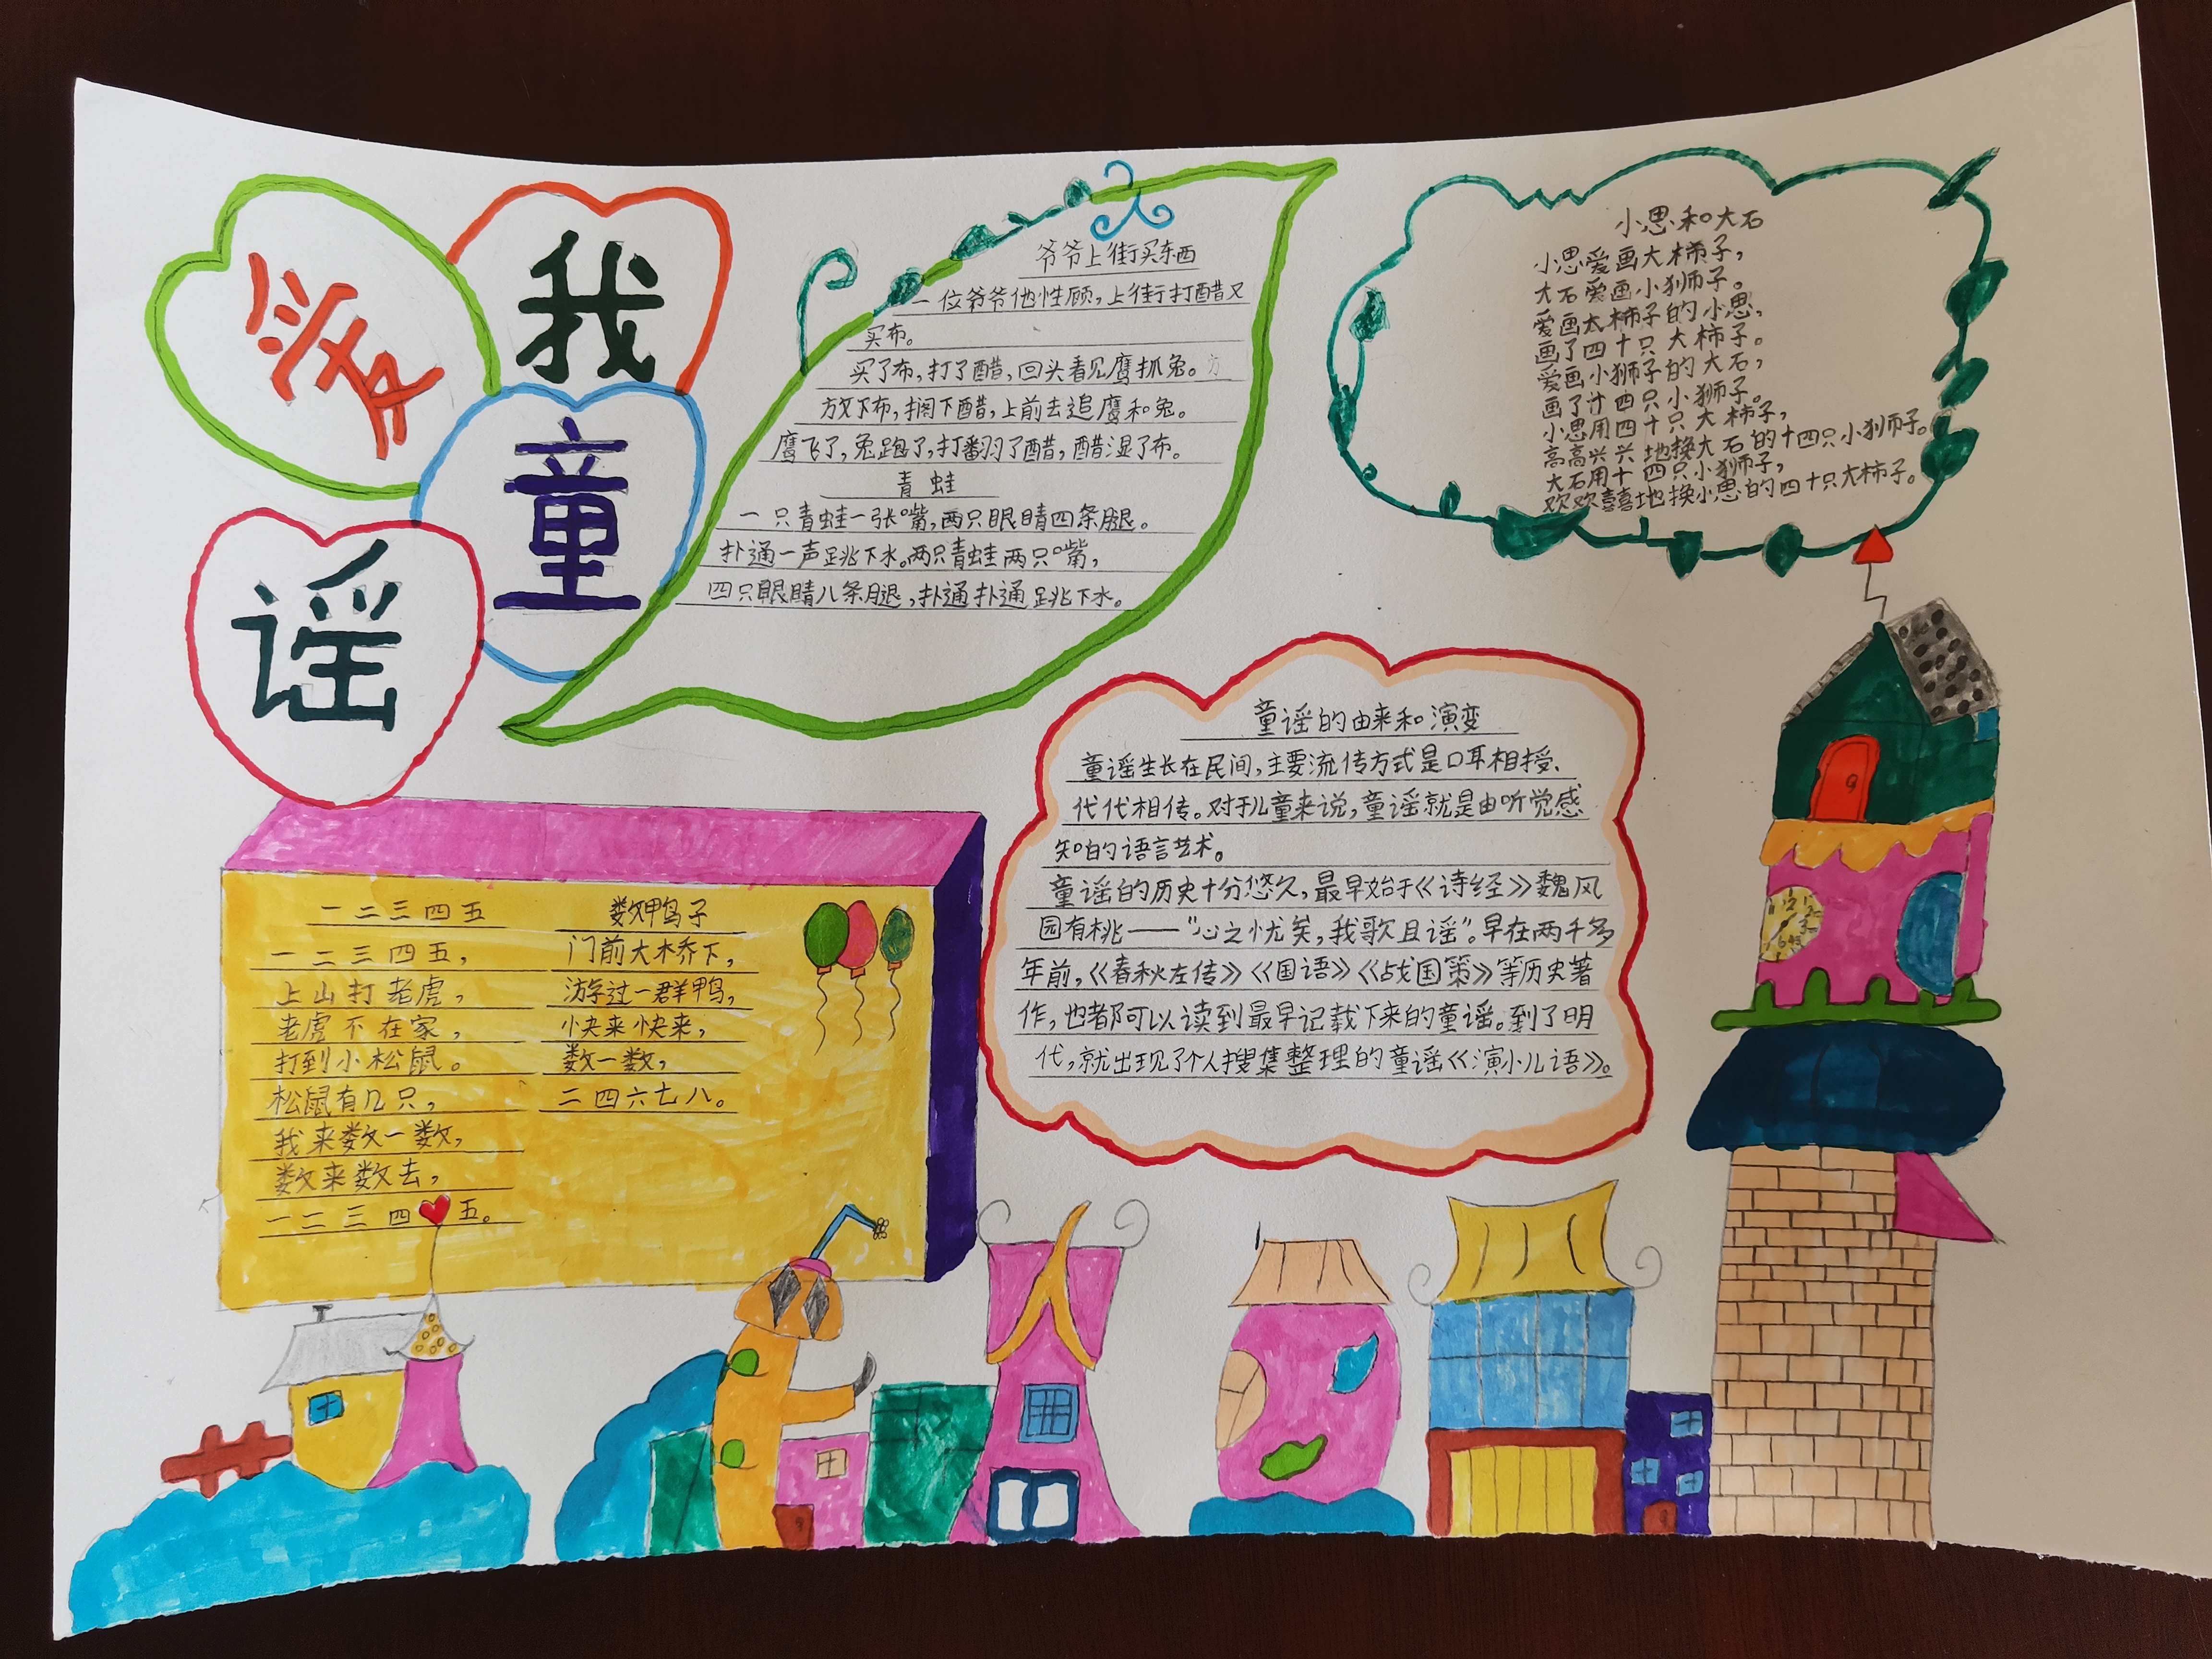 我
爱
童
谣
爷爷上街买东西
一位爷爷他性顾,上街打醋又
买布。
买了布,打了醋,回头看见鹰抓兔。方
放下布,搁下醋,上前去追鹰和兔。
鹰飞了,兔跑了,打翻了醋,醋湿了布。
青蛙
一只青蛙一张嘴,两只眼睛四条腿。
扑通一声跳下水。两只青蛙两只嘴,
四只眼睛八条腿,扑通扑通跳下水。
小思和大石
小思爱画大柿子,
大石爱画小狮子。
爱画大柿子的小思,
画了四十只大柿子。
爱画小狮子的大石,
画了计四只小狮子。
小思用四十只大柿子,
高高兴兴地换大石的十四只小狮子。
大石用十四只小狮子,
欢欢喜喜地换小思的四十只大柿子。
童谣的由来和演变
童谣生长在民间,主要流传方式是口耳相授、
代代相传。对于儿童来说,童谣就是由听觉感
知的语言艺术。
童谣的历史十分悠久,最早始于《诗经》魏风
园有桃——“心之忧矣,我歌且谣”。早在两千多
年前,《春秋左传》《国语》《战国策》等历史著
作,也都可以读到最早记载下来的童谣。到了明
代,就出现了个人搜集整理的童谣《演小儿语》。
一二三四五
一二三四五,
上山打老虎,
老虎不在家,
打到小松鼠。
松鼠有几只,
我来数一数,
数来数去,
一二三四五。
数鸭子
门前大桥下,
游过一群鸭,
快来快来,
数一数,
二四六七八。